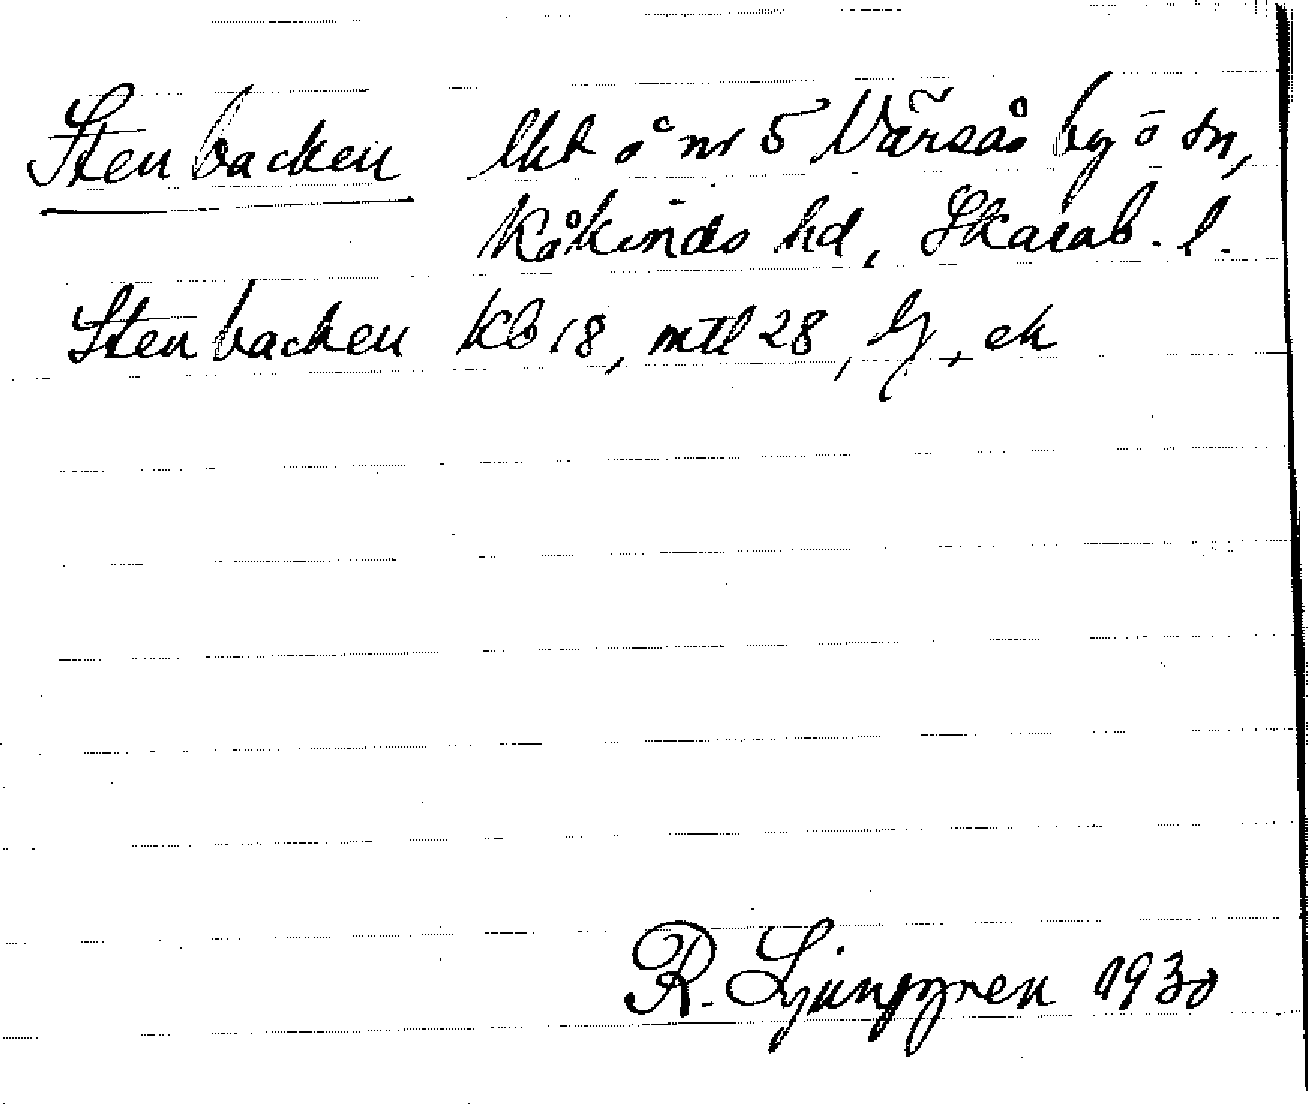 Stenbacken lht å nr 5 Värsås by o sn,
Kåkinds hd, Skarab. l.
Stenbacken Kb 18, mtl 28, lj, ek
R. Ljunggren 1930